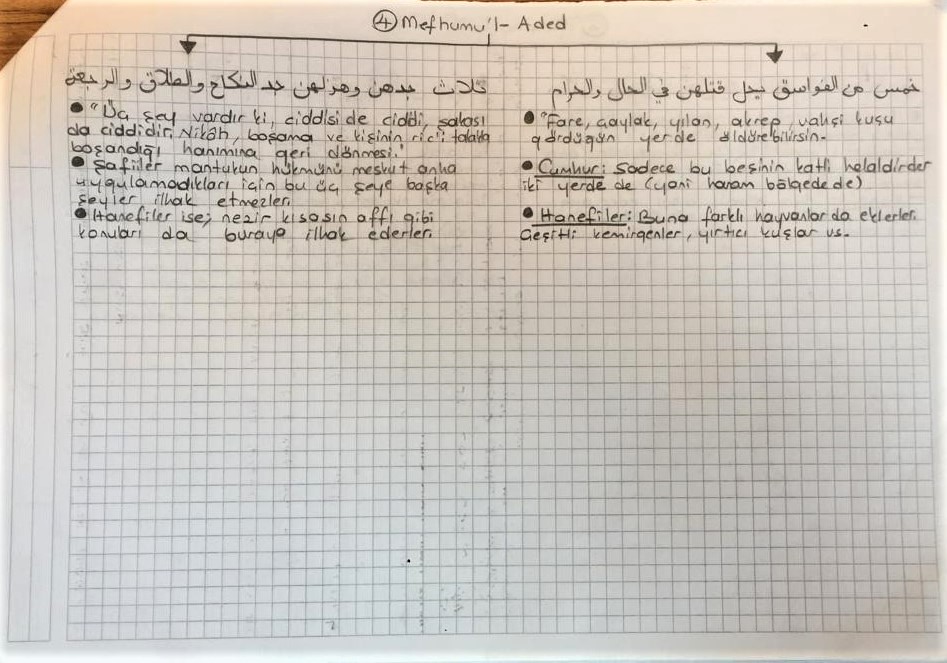 ④ Mefhumu'l-Aded
ثلاث جدهن وهزلهن جد النكاح والطلاق والرجعة
● "Üç şey vardır ki, ciddisi de ciddi, şakası
da ciddidir; Nikâh, boşama ve kişinin ric'i talakla
boşandığı hanımına geri dönmesi."
● Şafiiler mantukun hükmünü meskut anha
uygulamadıkları için bu üç şeye başka
şeyler ilhak etmezler.
● Hanefiler ise; nezir kısasın affı gibi
konuları da buraya ilhak ederler.
خمس من الفواسق يحل قتلهن في الحال والحرام
● "Fare, çaylak, yılan, akrep, vahşi kuşu
gördüğün yerde öldürebilirsin.
● Cumhur: Sadece bu beşinin katli helaldir der
iki yerde de (yani haram bölgede de)
● Hanefiler: Buna farklı hayvanlar da eklerler.
Çeşitli kemirgenler, yırtıcı kuşlar vs.